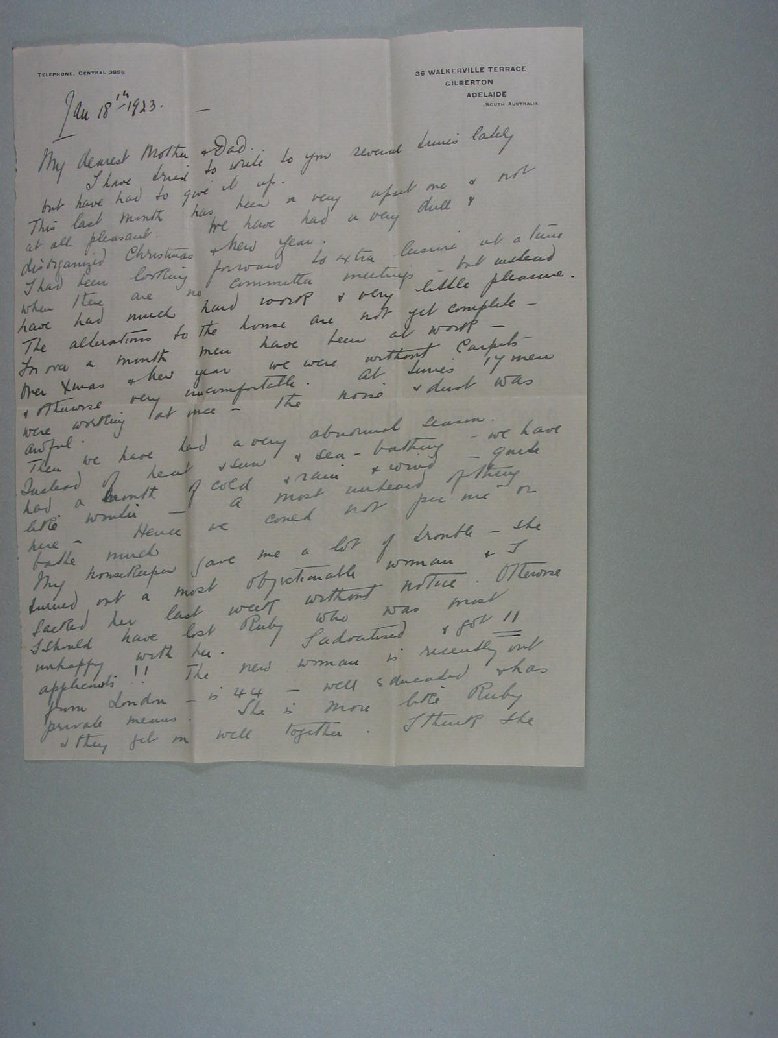 TELEPHONE, CENTRAL
38 WALKERVILLE TERRACE
GILBERTON
ADELAIDE
SOUTH AUSTRALIA
Jan 18th 1923. —
My dearest Mother & Dad.
I have tried to write to you several times lately
but have had to give it up.
This last month has been a very upset one & not
at all pleasant. We have had a very dull &
disorganized Christmas & New Year.
I had been looking forward to extra leisure at a time
when there are no committee meetings — but instead
have had much hard work & very little pleasure.
The alterations to the house are not yet complete —
for over a month men have been at work —
Over Xmas & New Year we were without carpets
& otherwise very uncomfortable. At times 17 men
were working at once — the noise & dust was
awful.
Then we have had a very abnormal season.
Instead of heat & sun & sea-bathing — we have
had a month of cold & rain & wind — quite
like winter — a most unheard of thing
here — Hence we could not picnic or
bathe much
My housekeeper gave me a lot of trouble — she
turned out a most objectionable woman & I
sacked her last week without notice. Otherwise
I should have lost Ruby who was most
unhappy with her. I advertised & got 11
applicants!! The new woman is recently out
from London — is 44 — well educated & has
private means. She is more like Ruby
& they get on well together. I think she